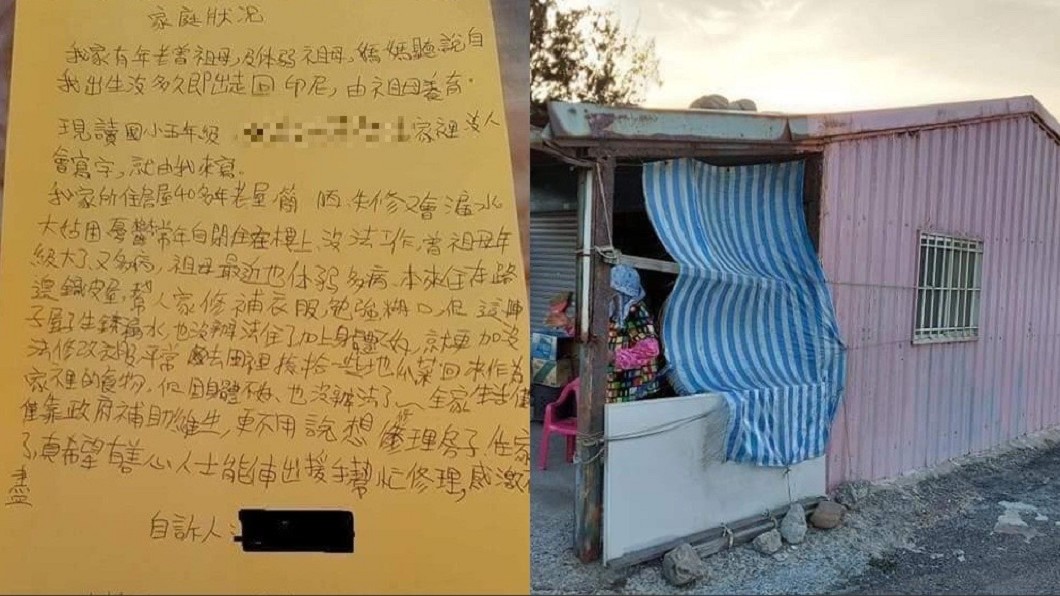 家庭狀况
我家有年老曾祖母,及体弱祖母,媽媽聽說自
我出生沒多久即出走回 印尼,由祖母養育。
現讀國小五年級 家裡沒人
會寫字,就由我來寫。
我家所住房屋40多年老屋 簡陋失修又會漏水
大姑因憂鬱常年自閉住在樓上、沒法工作,曾祖母年
級大了、又多病,祖母最近也体弱多病、本來住在路
邊鐵皮屋,幫人家修補衣服勉強糊口,但這陣
子屋子生銹漏水,也沒辦法住了加上身體不好,就更加沒
法修改衣服平常 去田裡撿拾一些地瓜菜回來作為
家裡的食物,但因身體不好、也沒辦法了、全家生活僅
僅靠政府補助維生,更不用說想修理房子,住家
了,真希望有善心人士能伸出援手幫忙修理,感激
盡
自訴人: